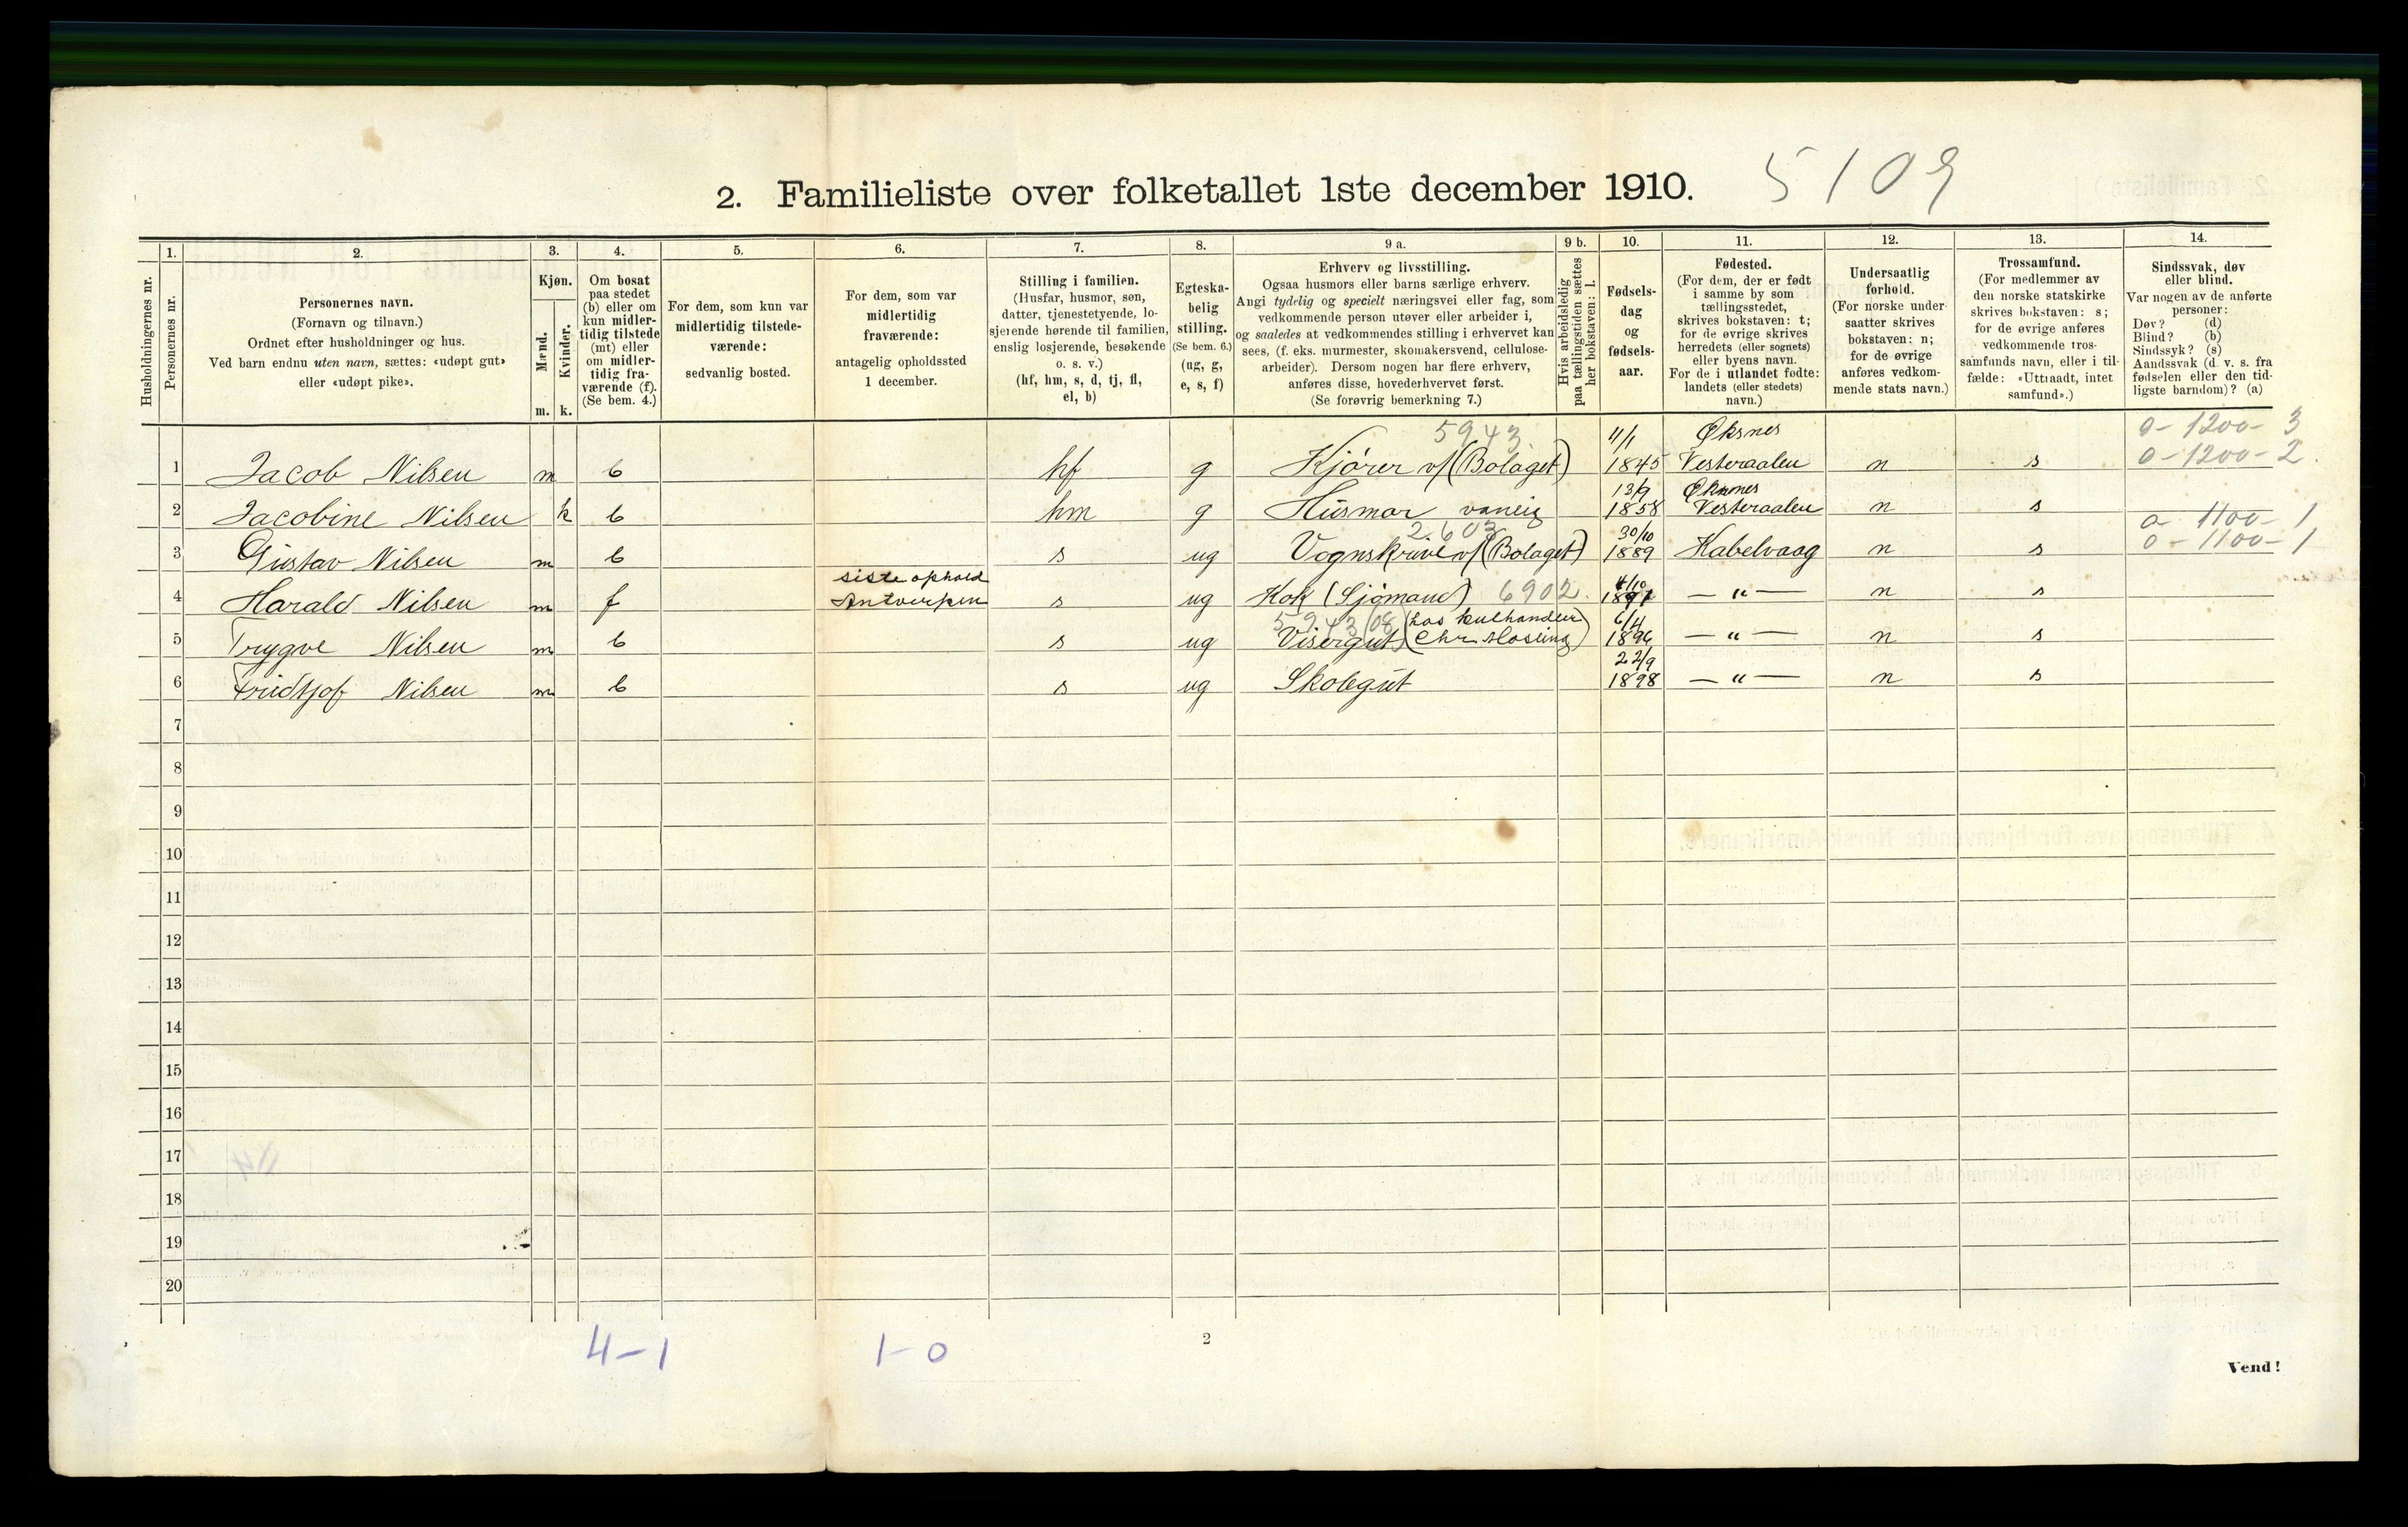 2. Familieliste over folketallet 1ste december 1910.
5109
Husholdningernes nr.
1.
Personernes nr.
2.
Personernes navn.
(Fornavn og tilnavn.)
Ordnet efter husholdninger og hus.
Ved barn endnu uten navn, sættes: «udøpt gut»
eller «udøpt pike».
3.
Kjøn.
Mænd.
Kvinder.
m. k.
4.
Om bosat
paa stedet
(b) eller om
kun midler-
tidig tilstede
(mt) eller
om midler-
tidig fra-
værende (f).
(Se bem. 4.)
5.
For dem, som kun var
midlertidig tilstede-
værende:
sedvanlig bosted.
6.
For dem, som var
midlertidig
fraværende:
antagelig opholdssted
1 december.
7.
Stilling i familien.
(Husfar, husmor, søn,
datter, tjenestetyende, lo-
sjerende hørende til familien,
enslig losjerende, besøkende
o. s. v.)
(hf, hm, s, d, tj, fl,
el, b)
8.
Egteska-
belig
stilling.
(Se bem. 6.)
(ug, g,
e, s, f)
9 a.
Erhverv og livsstilling.
Ogsaa husmors eller barns særlige erhverv.
Angi tydelig og specielt næringsvei eller fag, som
vedkommende person utøver eller arbeider i,
og saaledes at vedkommendes stilling i erhvervet kan
sees, (f. eks. murmester, skomakersvend, cellulose-
arbeider). Dersom nogen har flere erhverv,
anføres disse, hovederhvervet først.
(Se forøvrig bemerkning 7.)
9 b.
Hvis arbeidsledig
paa tællingstiden sættes
her bokstaven: l.
10.
Fødsels-
dag
og
fødsels-
aar.
11.
Fødested.
(For dem, der er født
i samme by som
tællingsstedet,
skrives bokstaven: t;
for de øvrige skrives
herredets (eller sognets)
eller byens navn.
For de i utlandet fødte:
landets (eller stedets)
navn.)
12.
Undersaatlig
forhold.
(For norske under-
saatter skrives
bokstaven: n;
for de øvrige
anføres vedkom-
mende stats navn.)
13.
Trossamfund.
(For medlemmer av
den norske statskirke
skrives bokstaven: s;
for de øvrige anføres
vedkommende tros-
samfunds navn, eller i til-
fælde: «Uttraadt, intet
samfund».)
14.
Sindssvak, døv
eller blind.
Var nogen av de anførte
personer:
Døv? (d)
Blind? (b)
Sindssyk? (s)
Aandssvak (d. v. s. fra
fødselen eller den tid-
ligste barndom)? (a)
5943. 4/1 Øksnes 0-1200-3
1 Jacob Nilsen m b hf g Kjører v/(Bolaget) 1845 Vesteraalen n s 0-1200-2.
13/9 Øksnes
2 Jacobine Nilsen k b hm g Husmor 1858 Vesteraalen n s
2.603 30/10 0-1100-1
3 Gustav Nilsen m b s ug Vognskriver v/(Bolaget) 1889 Kabelvaag n s 0-1100-1
siste ophold 4/10
4 Harald Nilsen m f Antverpen s ug Kok (Sjømand) 6902. 1891 — " — n s
5943/08 (hos kulhandler 6/4
5 Trygve Nilsen m b s ug Visergut Chr. 1896 — " — n s
22/9
6 Fridtjof Nilsen m b s ug Skolegut 1898 — " — n s
7
8
9
10
11
12
13
14
15
16
17
18
19
20
4-1 1-0
2
Vend!